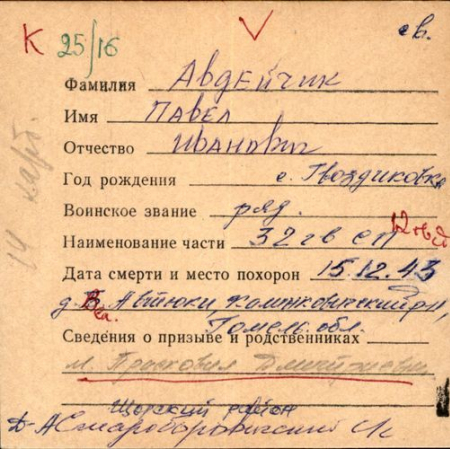 К 25/16 V св.
Фамилия Авдейчик
Имя Павел
Отчество Иванович
Год рождения с. Гвоздиковка
Воинское звание ряд.
Наименование части 32 гв сп 12 гв
Дата смерти и место похорон 15.12.43
д. Автюки, Калинковичский р-н,
Гомел. обл.
Сведения о призыве и родственниках
м. Прасковия
Щорский район
14 карт.